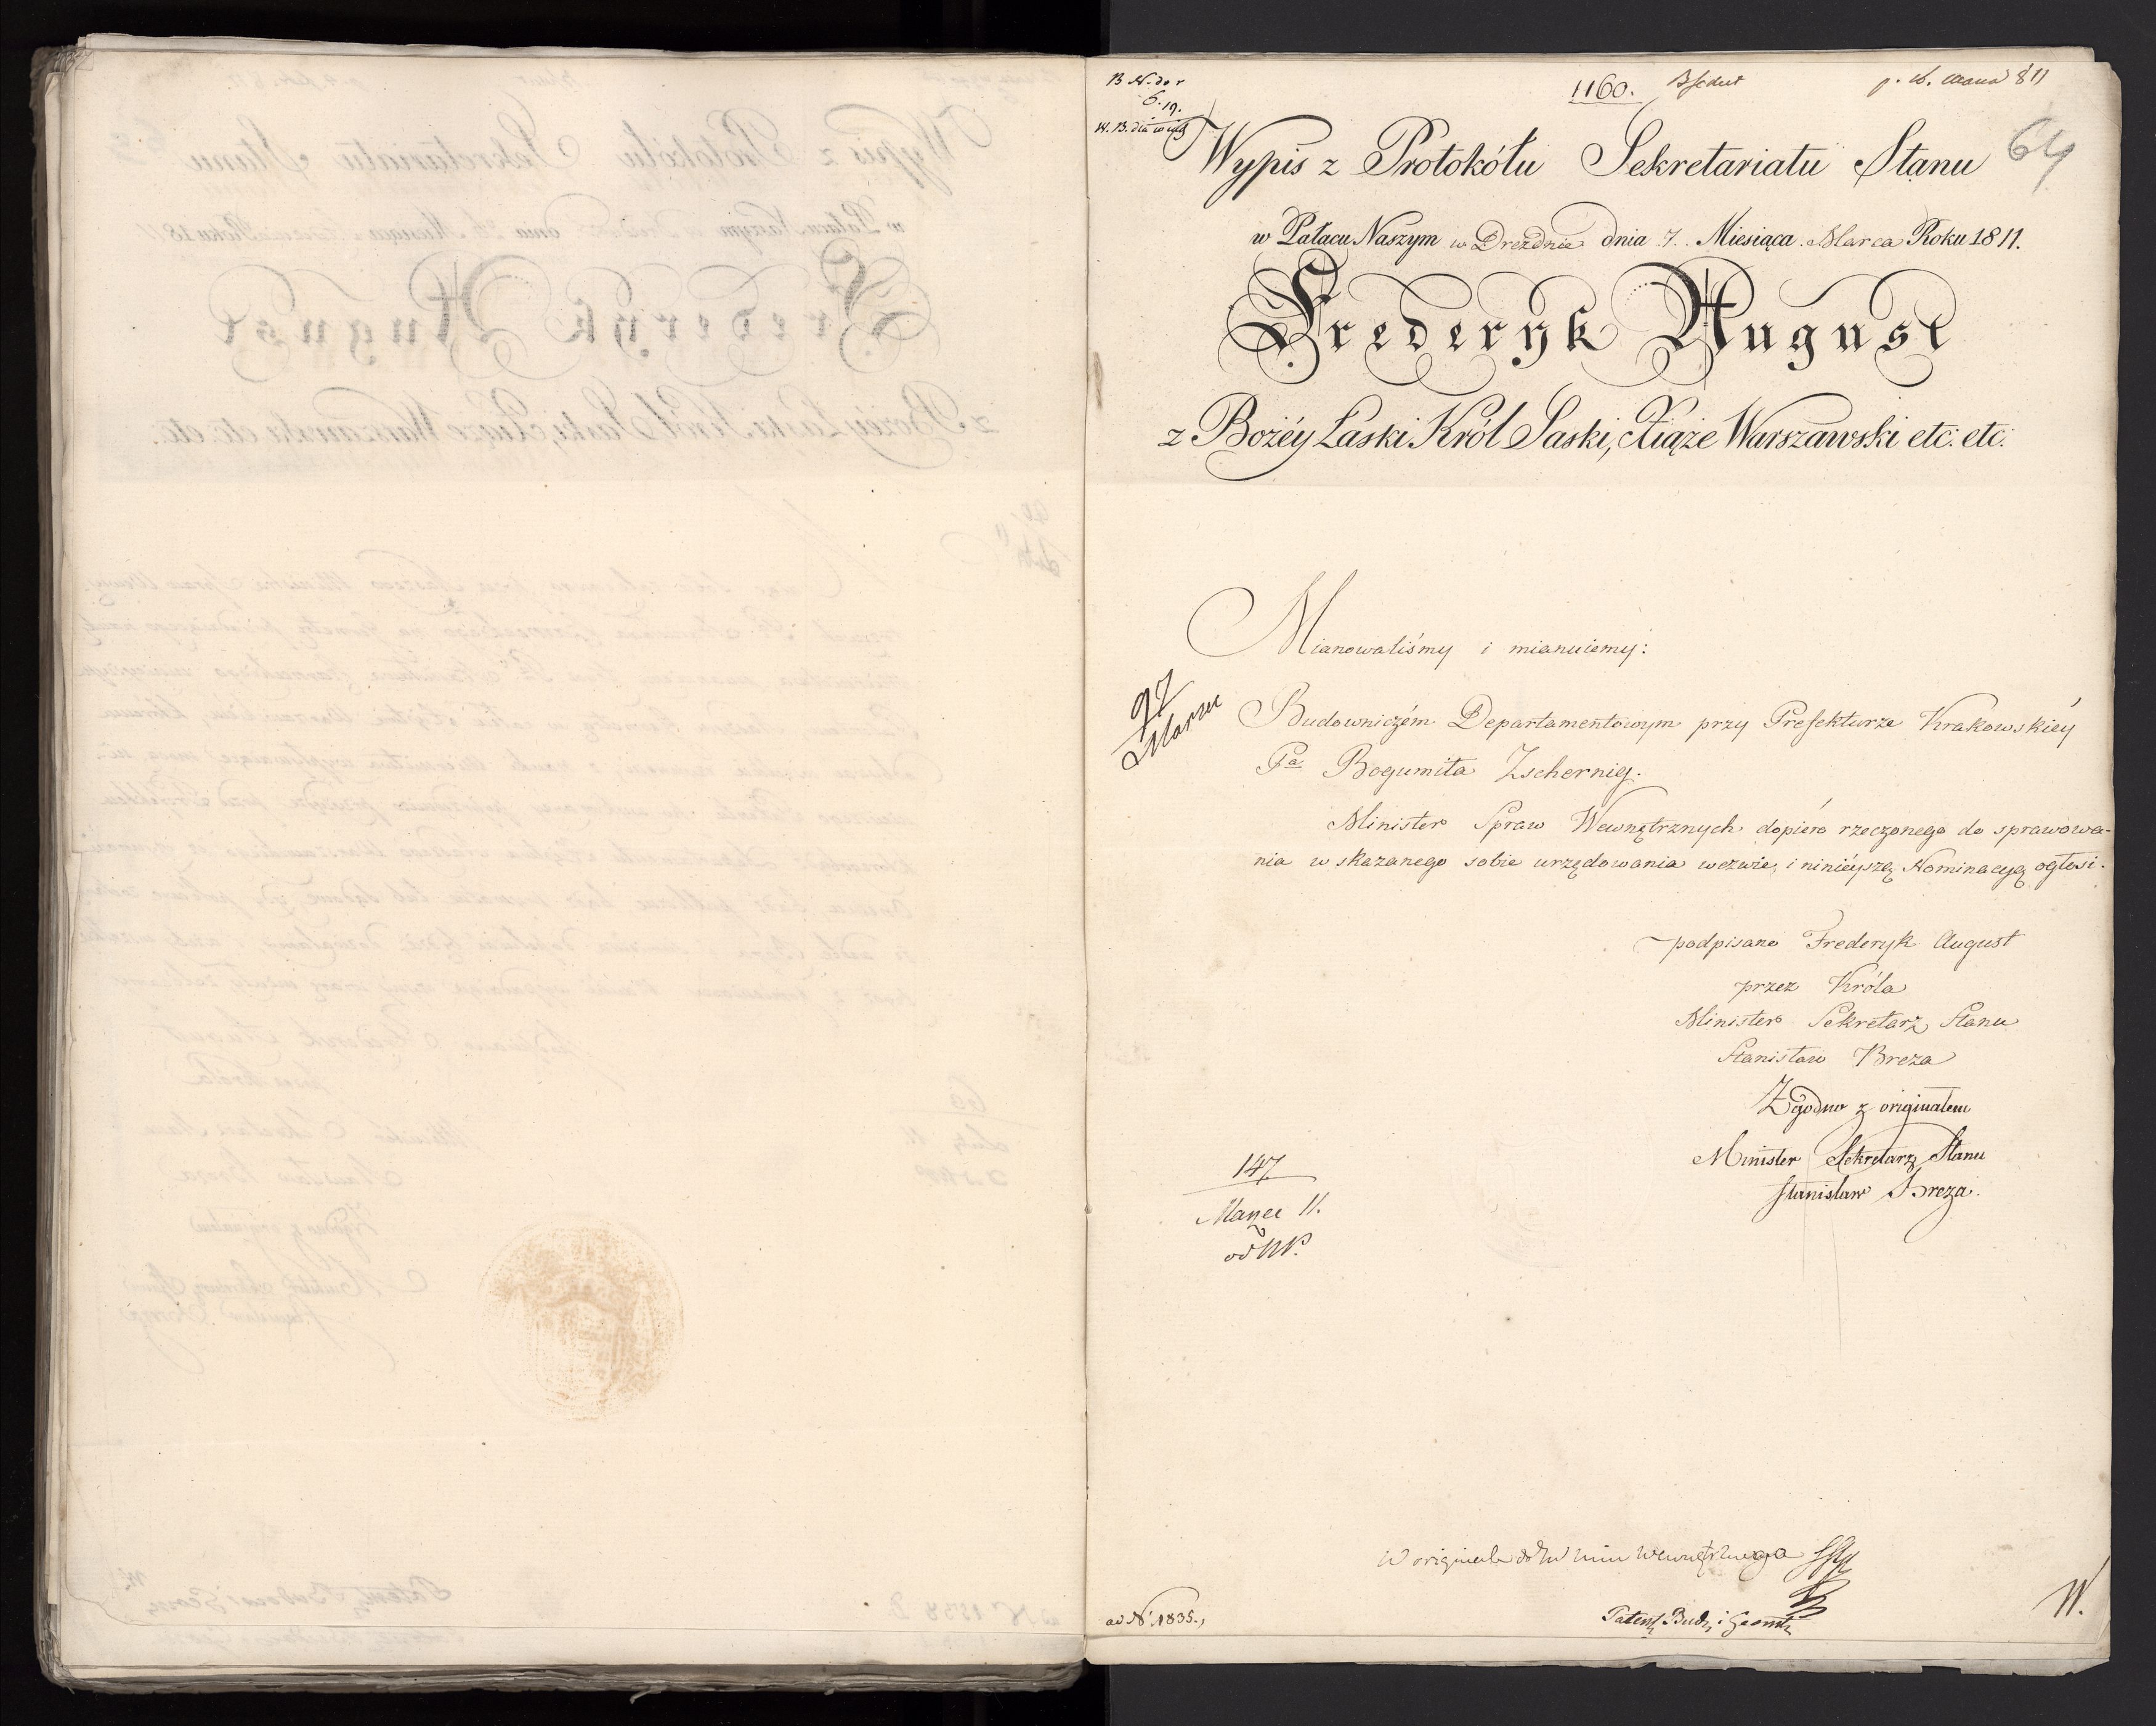 B N. do r
6. 19.
1160.
64
Wypis z Protokółu Sekretariatu Stanu
w Pałacu Naszym w Dreźdnie dnia 7. Miesiąca Marca Roku 1811.
Frederyk August
z Bożéy Łaski Król Saski, Xiąże Warszawski etc: etc:
Mianowaliśmy i mianuiemy:
97
Marzec
Budowniczém Departamentowym przy Prefekturze Krakowskiéy
Pa Bogumiła Zschernig.
Minister Spraw Wewnętrznych dopiéro rzeczonego do sprawowa-
nia wskazanego sobie urzędowania wezwie, i ninieyszą Nominacyą ogłosi.
podpisano Frederyk August
przez Króla
Minister Sekretarz Stanu
Stanisław Breza
Zgodno z originałem
Minister Sekretarz Stanu
Stanisław Breza.
147
Marzec 11.
od
W originale Wewnętrznego
ad N. 1835.,
Patenty Bud. i Geomet.
W.